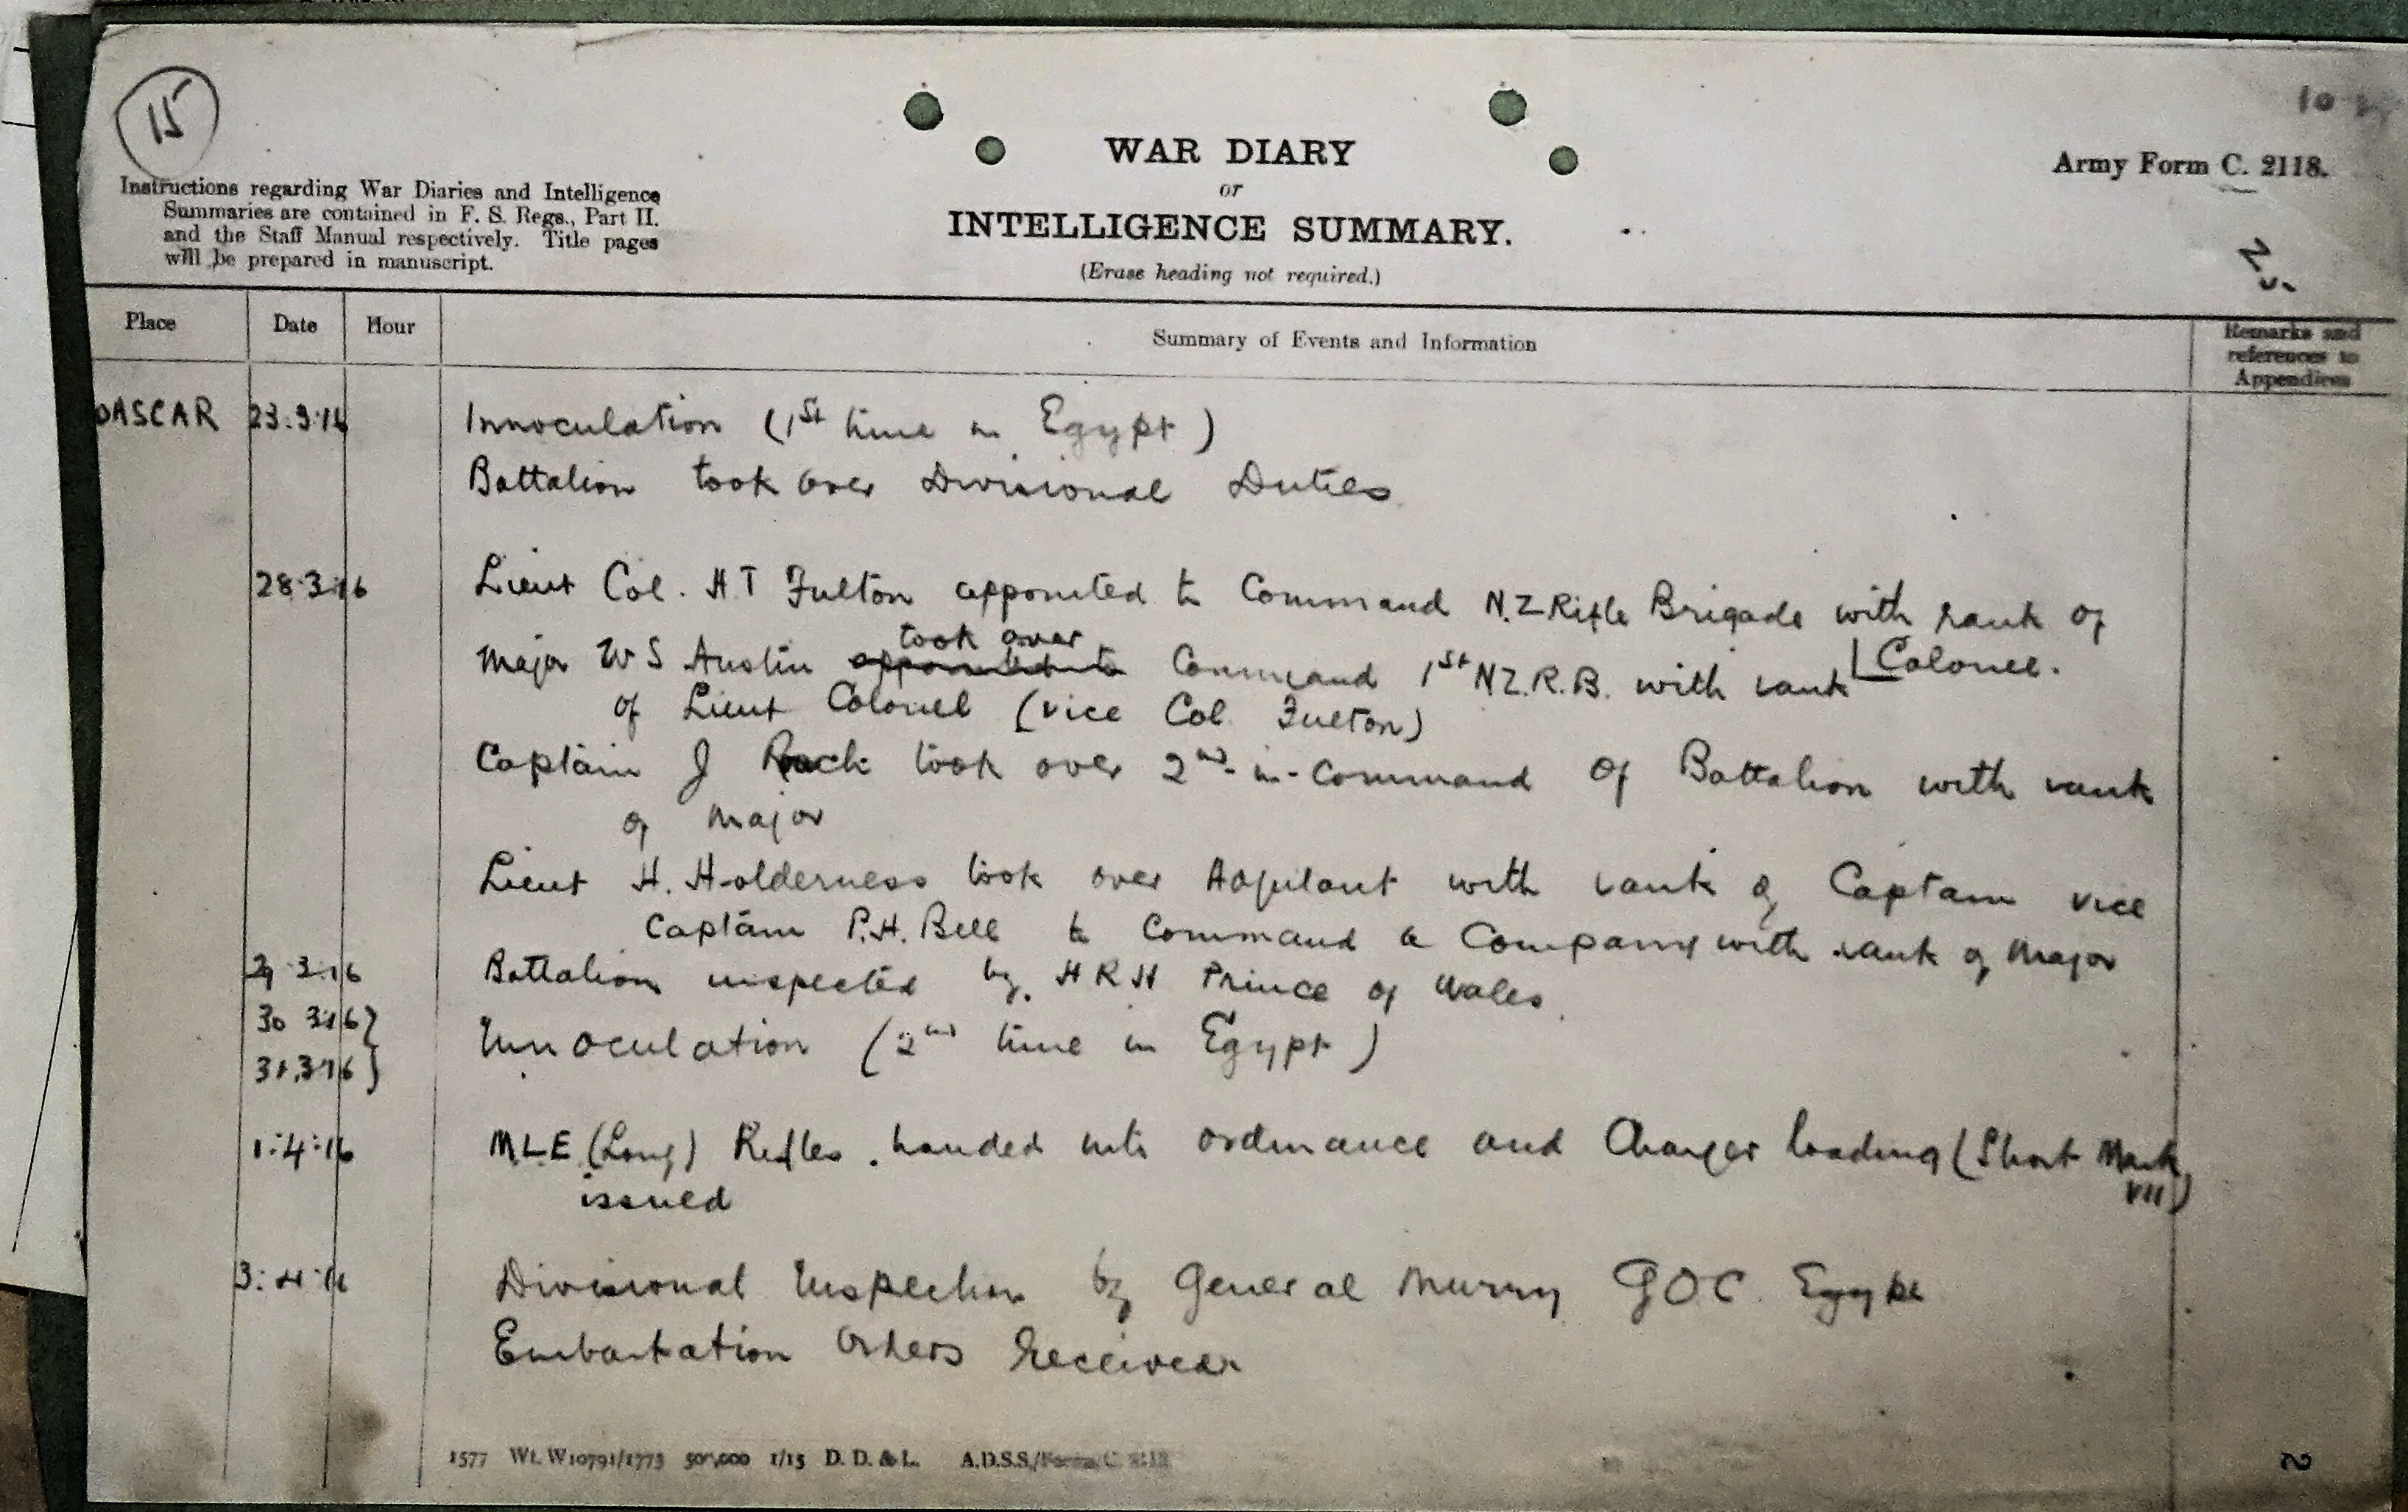 15
Instructions regarding War Diaries and Intelligence
Summaries are contained in F. S. Regs., Part II.
and the Staff Manual respectively. Title pages
will be prepared in manuscript.
WAR DIARY
or
INTELLIGENCE SUMMARY.
(Erase heading not required.)
Army Form C. 2118.
Place Date Hour Summary of Events and Information Remarks and
references to
Appendices
OASCAR 23.3.16 Innoculation (1st time in Egypt)
Battalion took over Divisional Duties
28.3.16 Lieut Col. H T Fulton appointed to Command N.Z Rifle Brigade with rank of
Colonel.
Major W S Austin appointed to took over Command 1st N.Z.R.B. with rank
of Lieut Colonel (vice Col Fulton)
Captain J took over 2nd-in-Command of Battalion with rank
of Major
Lieut H. Holderness took over Adjutant with rank of Captain vice
Captain P.H. Bell to Command a Company with rank of Major
29 3.16 Battalion inspected by H R H Prince of Wales.
30 3.16}
31.3.16} Innoculation (2nd time in Egypt)
1.4.16 MLE (Long) Rifles handed into ordinance and Charger loading (Short Mark
VII)
issued
3.4.16 Divisional Inspection by General Murry GOC Egypt
Embarkation Orders Received
1577 Wt. W10791/1773 500,000 1/15 D. D. & L. A.D.S.S./Forms/C. 2118
2